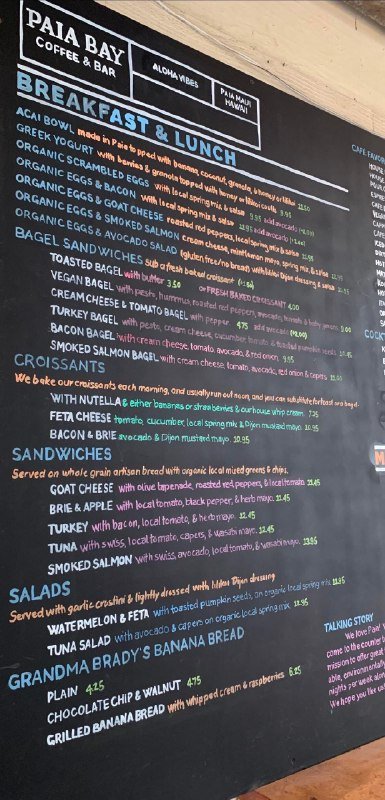 PAIA BAY
COFFEE & BAR
ALOHA VIBES
PAIA MAUI
HAWAII
BREAKFAST & LUNCH
ACAI BOWL made in Paia topped with banana, coconut, granola, & honey or lilikoi 11.50
GREEK YOGURT with berries & granola topped with honey or lilikoi curd 9.95
ORGANIC SCRAMBLED EGGS with local spring mix & salsa 9.95 add avocado
ORGANIC EGGS & BACON with local spring mix & salsa
ORGANIC EGGS & GOAT CHEESE roasted red peppers, local spring mix & salsa
ORGANIC EGGS & SMOKED SALMON cream cheese, mix, & salsa
ORGANIC EGGS & AVOCADO SALAD (gluten free/no bread) with lilikoi Dijon dressing & salsa
BAGEL SANDWICHES sub a fresh baked croissant
TOASTED BAGEL with butter 3.50 or FRESH BAKED CROISSANT 4.00
VEGAN BAGEL with pesto, hummus, roasted red peppers, avocado, tomato & 9.00
CREAM CHEESE & TOMATO BAGEL with pepper 4.75 add avocado
TURKEY BAGEL with pesto, cream cheese, cucumber, tomato & toasted pumpkin seeds
BACON BAGEL with cream cheese, tomato, avocado, & red onion
SMOKED SALMON BAGEL with cream cheese, tomato, avocado, red onion & capers
CROISSANTS
We bake our croissants each morning, and usually run out noon, and you can substitute for toast or a bagel
WITH NUTELLA & either bananas or strawberries & our house whip cream 7.25
FETA CHEESE tomato, cucumber, local spring mix & Dijon mustard mayo. 10.95
BACON & BRIE avocado & Dijon mustard mayo. 10.95
SANDWICHES
Served on whole grain artisan bread with organic local mixed greens & chips.
GOAT CHEESE with olive tapenade, roasted red peppers, & local tomato. 11.45
BRIE & APPLE with local tomato, black pepper, & herb mayo. 11.45
TURKEY with bacon, local tomato, & herb mayo. 12.45
TUNA with swiss, local tomato, capers, & wasabi mayo. 12.45
SMOKED SALMON with swiss, avocado, local tomato, & wasabi mayo. 13.95
SALADS
Served with garlic crostini & lightly dressed with lilikoi Dijon dressing
WATERMELON & FETA with toasted pumpkin seeds, on organic local spring mix
TUNA SALAD with avocado & capers on organic local spring mix.
GRANDMA BRADY'S BANANA BREAD
PLAIN 4.25
CHOCOLATE CHIP & WALNUT 4.75
GRILLED BANANA BREAD with whipped cream & raspberries 6.25
CAFE
TALKING STORY
We love Paia!
come to the counter
mission to offer great
able, environmentally
nights per week
We hope you like